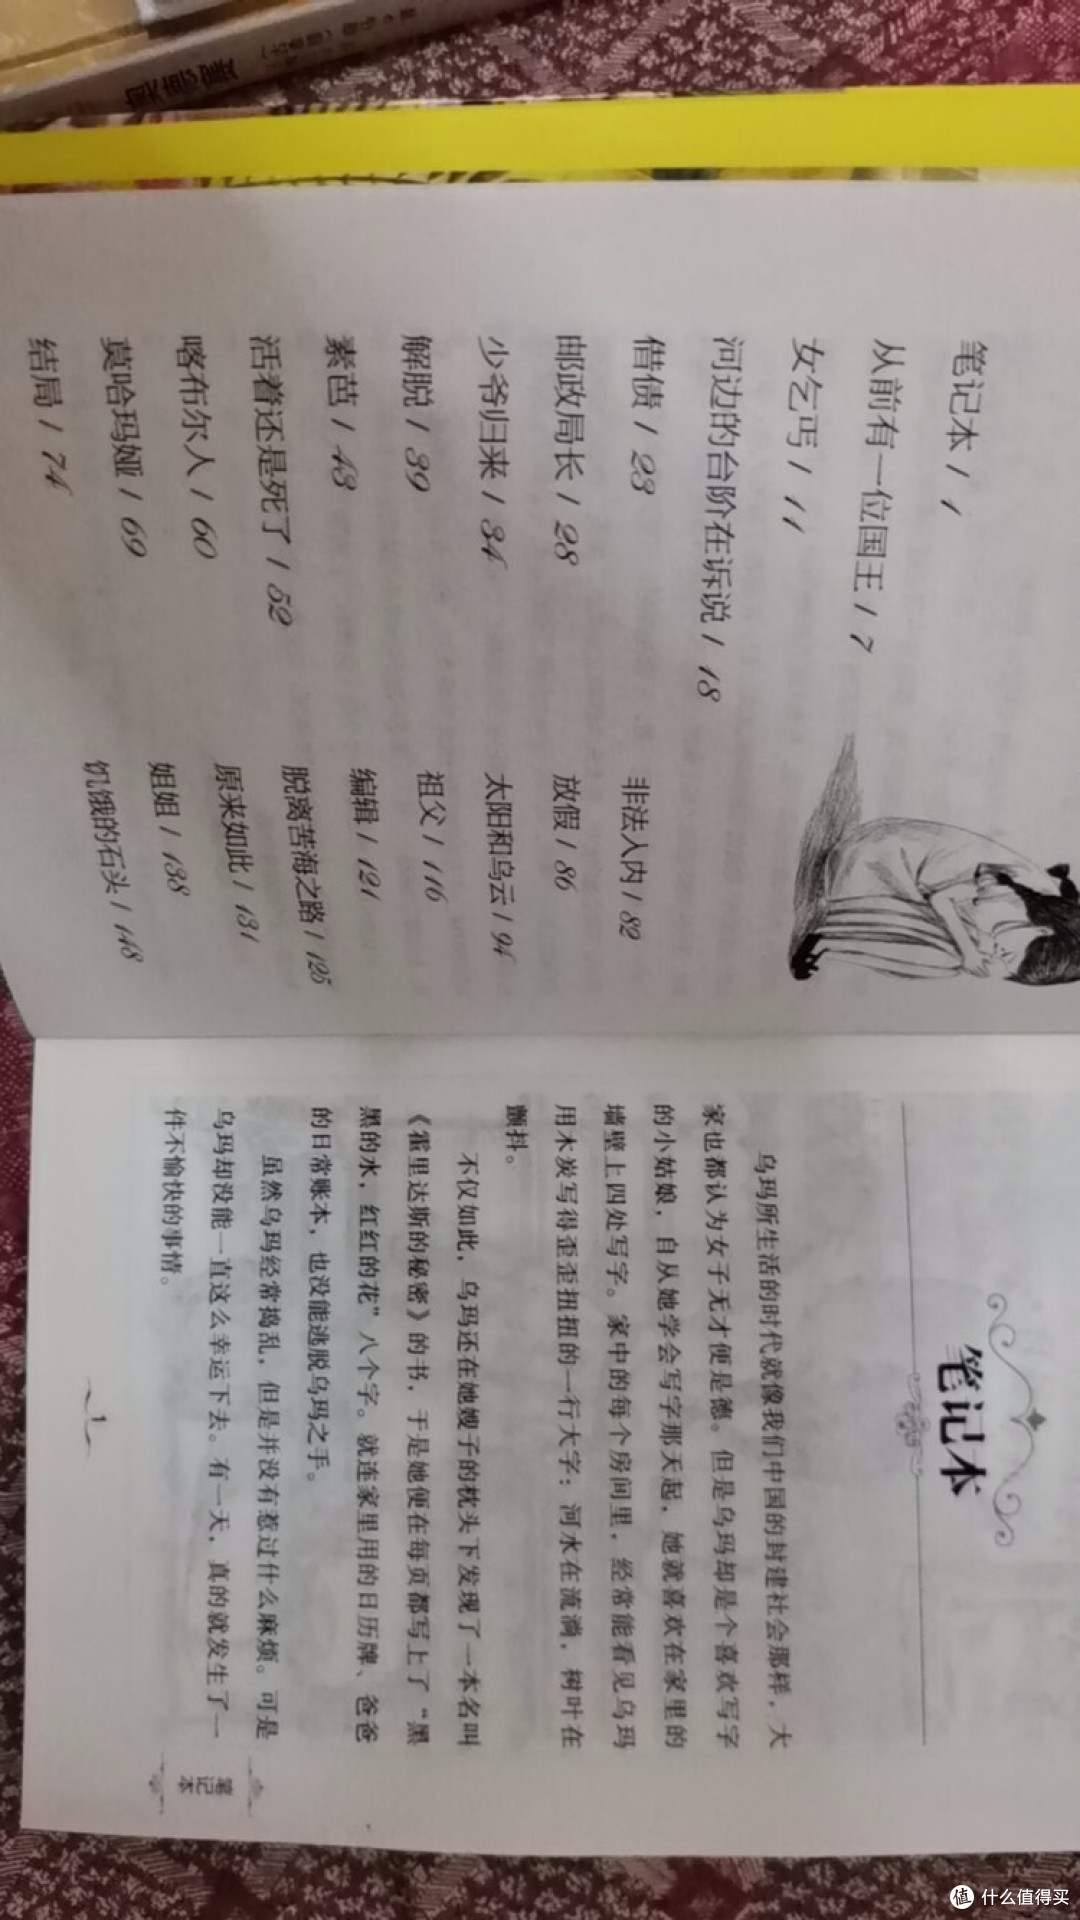 笔记本 / 1
从前有一位国王 / 7
女乞丐 / 11
河边的台阶在诉说 / 18
借债 / 23
邮政局长 / 28
少爷归来 / 34
解脱 / 39
素芭 / 43
活着还是死了 / 52
喀布尔人 / 60
莫哈玛娅 / 69
结局 / 74
非法入内 / 82
放假 / 86
太阳和乌云 / 94
祖父 / 116
编辑 / 121
脱离苦海之路 / 125
原来如此 / 131
姐姐 / 138
饥饿的石头 / 148
笔记本
乌玛所生活的时代就像我们中国的封建社会那样，大
家也都认为女子无才便是德。但是乌玛却是个喜欢写字
的小姑娘，自从她学会写字那天起，她就喜欢在家里的
墙壁上四处写字。家中的每个房间里，经常能看见乌玛
用木炭写得歪歪扭扭的一行大字：河水在流淌，树叶在
颤抖。
不仅如此，乌玛还在她嫂子的枕头下发现了一本名叫
《霍里达斯的秘密》的书，于是她便在每页都写上了“黑
黑的水，红红的花”八个字。就连家里用的日历牌、爸爸
的日常账本，也没能逃脱乌玛之手。
虽然乌玛经常捣乱，但是并没有惹过什么麻烦。可是
乌玛却没能一直这么幸运下去。有一天，真的就发生了一
件不愉快的事情。
1
笔记本
值 什么值得买